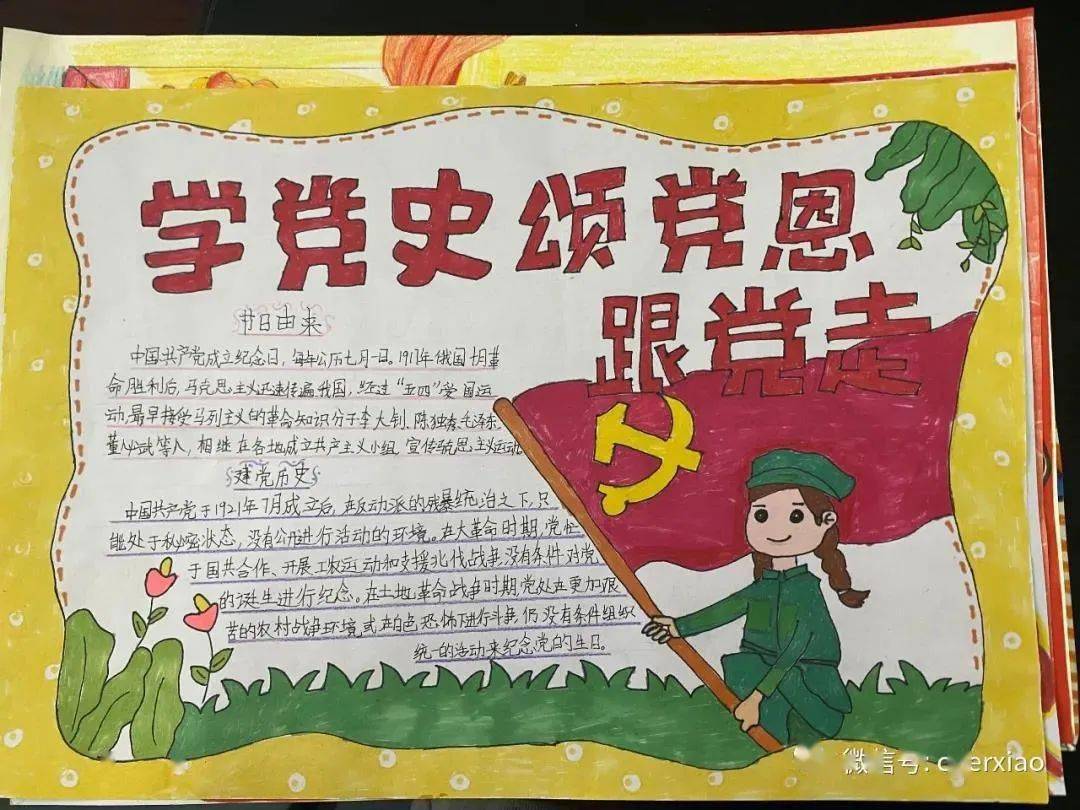 学党史颂党恩
跟党走
节日由来
中国共产党成立纪念日，每年公历七月一日。1917年俄国十月革
命胜利后，马克思主义迅速传遍我国，经过“五四”爱国运
动，最早接受马列主义的革命知识分子李大钊、陈独秀、毛泽东、
董必武等人，相继在各地成立共产主义小组，宣传马克思主义运动
建党历史
中国共产党于1921年7月成立后，在反动派的残暴统治之下，只
能处于秘密状态，没有公开进行活动的环境。在大革命时期，党忙
于国共合作、开展工农运动和支援北伐战争，没有条件对党
的诞生进行纪念。在土地革命战争时期，党处在更加艰
苦的农村战争环境或在白色恐怖下进行斗争，仍没有条件组织
统一的活动来纪念党的生日。
微信号: c erxiao